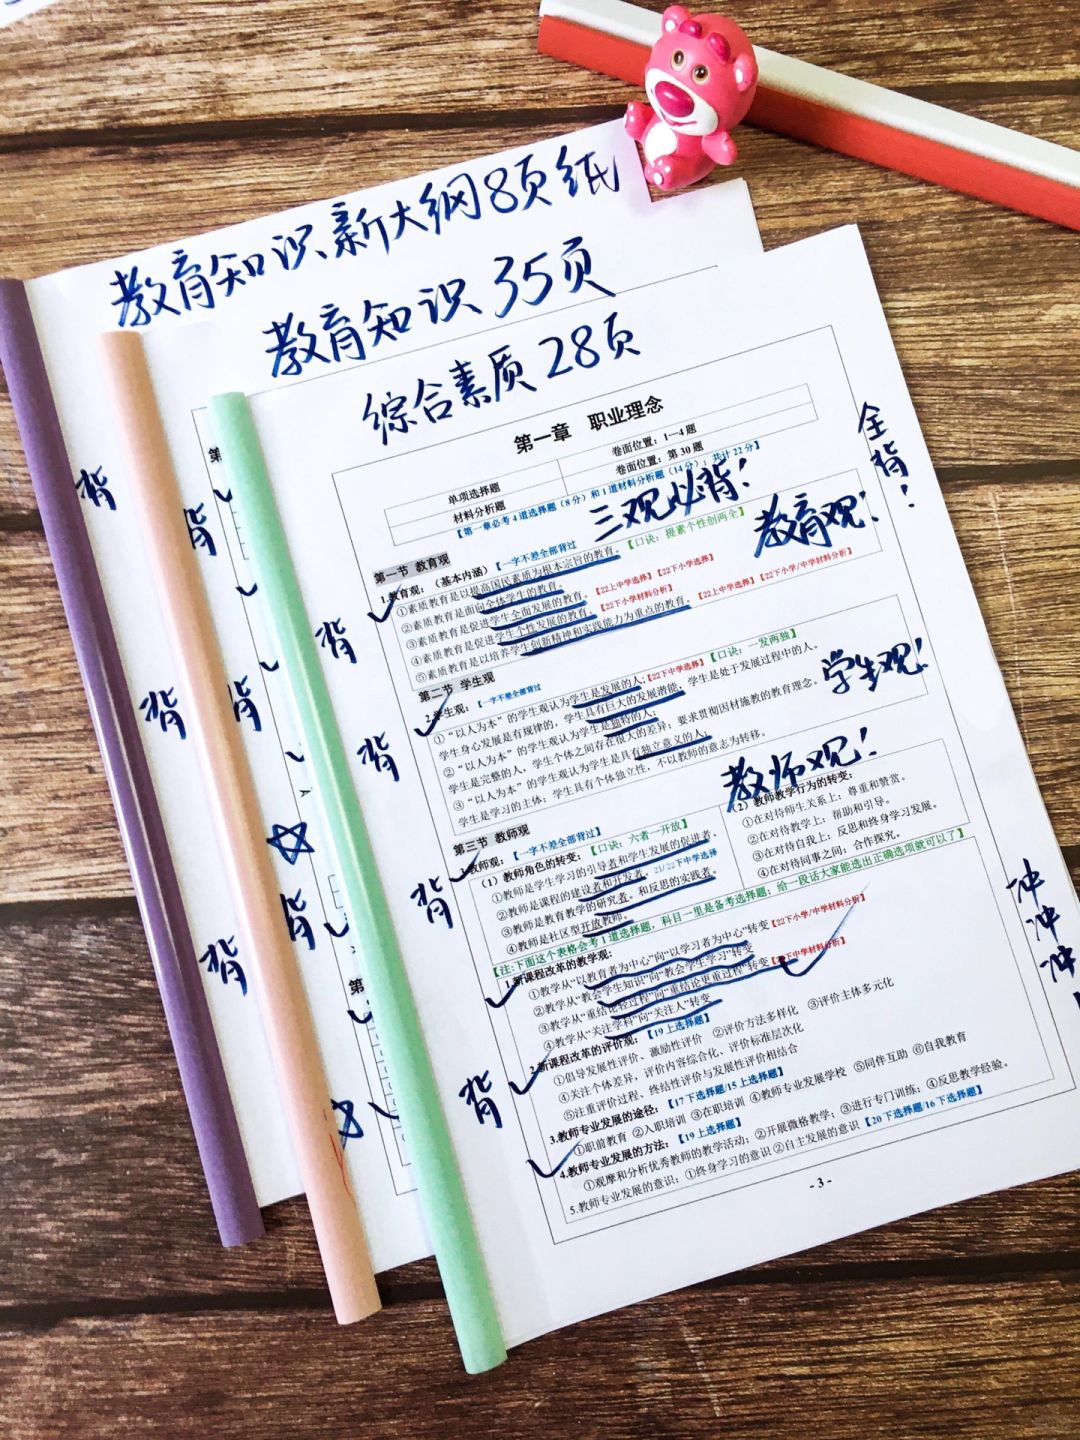 教育知识新大纲8页纸
教育知识35页
综合素质28页
第一章 职业理念
单项选择题 卷面位置：1—4题
材料分析题 卷面位置：第30题
【第一章必考4道选择题（8分）和1道材料分析题（14分）；共计22分】
三观必背！
全背！
教育观！
第一节 教育观
1.教育观：（基本内涵）【一字不差全部背过 【口诀：提素个性创两全】
①素质教育是以提高国民素质为根本宗旨的教育。
②素质教育是面向全体学生的教育。【22上中学选择】【22下小学选择】
③素质教育是促进学生全面发展的教育。【22下小学材料分析】【22下小学/中学材料分析】
④素质教育是促进学生个性发展的教育。【22上中学选择】
⑤素质教育是以培养学生创新精神和实践能力为重点的教育。
第二节 学生观
2.学生观：【一字不差全部背过 【口诀：一发两独】
①“以人为本”的学生观认为学生是发展的人；【22下中学选择】
学生身心发展是有规律的，学生具有巨大的发展潜能，学生是处于发展过程中的人。
②“以人为本”的学生观认为学生是独特的人；
学生是完整的人，学生个体之间存在很大的差异；要求贯彻因材施教的教育理念。
③“以人为本”的学生观认为学生是具有独立意义的人；
学生是学习的主体；学生具有个体独立性，不以教师的意志为转移。
学生观！
教师观！
第三节 教师观
教师观：【一字不差全部背过】
（1）教师角色的转变：【口诀：六者一开放】
①教师是学生学习的引导者和学生发展的促进者。
②教师是课程的建设者和开发者。21/22下中学选择
③教师是教育教学的研究者。和反思的实践者。
④教师是社区型开放教师。
（2）教师教学行为的转变：
①在对待师生关系上：尊重和赞赏。
②在对待教学上：帮助和引导。
③在对待自我上：反思和终身学习发展。
④在对待同事之间：合作探究。
【注:下面这个表格会考1道选择题，科目一里是备考选择题；给一段话大家能选出正确选项就可以了】
1.新课程改革的教学观：
①教学从“以教育者为中心”向“以学习者为中心”转变【22下小学/中学材料分析】
②教学从“教会学生知识”向“教会学生学习”转变
③教学从“重结论轻过程”向“重结论更重过程”转变【22下中学材料分析】
④教学从“关注学科”向“关注人”转变
2.新课程改革的评价观：【19上选择题】
①倡导发展性评价、激励性评价 ②评价方法多样化 ③评价主体多元化
④关注个体差异，评价内容综合化、评价标准层次化
⑤注重评价过程、终结性评价与发展性评价相结合
3.教师专业发展的途径：【17下选择题/15上选择题】
①职前教育 ②入职培训 ③在职培训 ④教师专业发展学校 ⑤同伴互助 ⑥自我教育
4.教师专业发展的方法：【19上选择题】
①观摩和分析优秀教师的教学活动；②开展微格教学；③进行专门训练；④反思教学经验。
5.教师专业发展的意识；①终身学习的意识②自主发展的意识【20下选择题/16下选择题】
- 3 -
背
背
背
背
背
背
背
背
背
背
冲
冲
冲